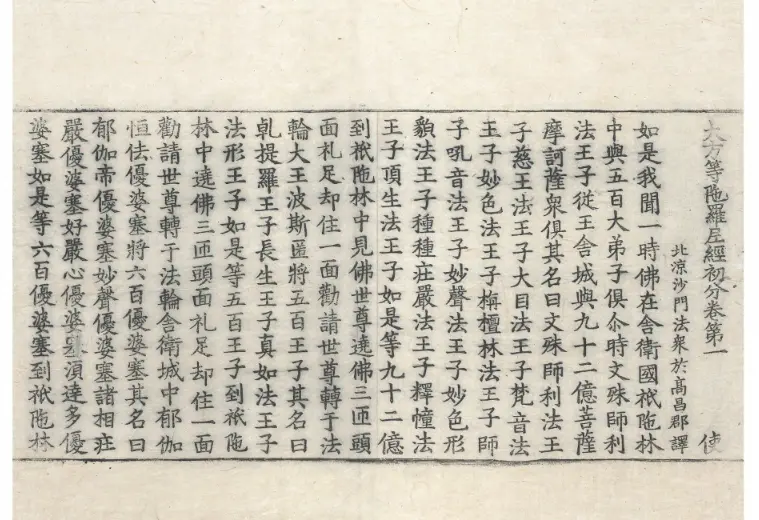 大方等陁羅尼經初分卷第一 使
北涼沙門法衆於髙昌郡譯
如是我聞一時佛在舍衛國祇陁林
中與五百大弟子俱尒時文殊師利
法王子從王舍城與九十二億菩薩
摩訶薩衆俱其名曰文殊師利法王
子慈王法王子大目法王子梵音法
王子妙色法王子栴檀林法王子師
子吼音法王子妙聲法王子妙色形
貌法王子種種莊嚴法王子釋幢法
王子頂生法王子如是等九十二億
到祇陁林中見佛世尊遶佛三匝頭
面礼足却住一面勸請世尊轉于法
輪大王波斯匿將五百王子其名曰
乹提羅王子長生王子真如法王子
法形王子如是等五百王子到祇陁
林中遶佛三匝頭面礼足却住一面
勸請世尊轉于法輪舍衛城中郁伽
恒佉優婆塞將六百優婆塞其名曰
郁伽帝優婆塞妙聲優婆塞諸相莊
嚴優婆塞好嚴心優婆塞須達多優
婆塞如是等六百優婆塞到祇陁林